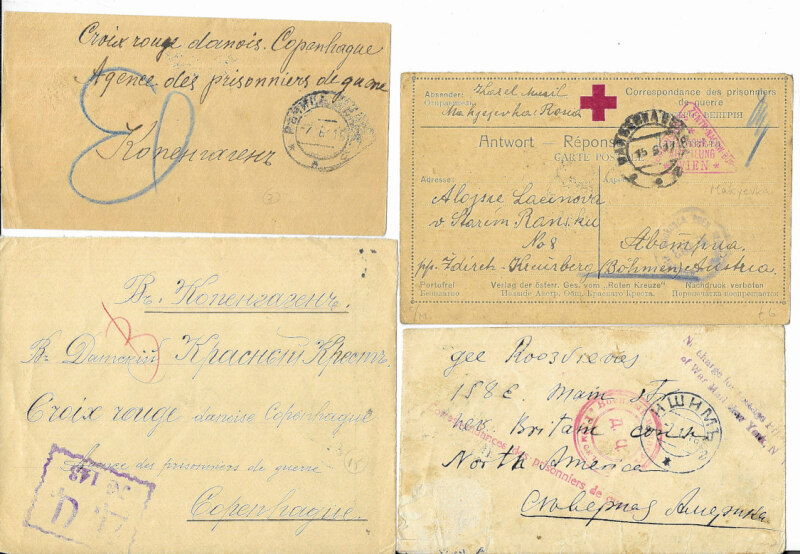 Croix rouge danois. Copenhague
Agence des prisonniers de guerre
Копенгагенъ
Absender:
Karel Musil
Makyevka Rosia
Correspondance des prisonniers
de guerre
Antwort — Réponse
CARTE POSTALE
WIEN
15 6
Makyevka
Adresse:
Aloisie Lacinova
v Starém Ransku
No 8
pp. Ždírec - Kreuzberg (Böhmen) Austria
Австрия.
Portofrei
Бесплатно
Verlag der österr. Ges. vom „Roten Kreuze“
Издание Австр. Общ. Краснаго Креста
Nachdruck verboten
Перепечатка воспрещается
Въ Копенгагенъ.
Въ Датскій Красный Крестъ
Croix rouge danoise Copenhague
Agence des prisonniers de guerre
Copenhague.
Д Ц
30 143
158 E. Main St.
new Britain conn
North America
Съверная Америка
No charge for
of War Mail New York, N
ИШИМЪ
Д. Ц.
Correspondances des prisonniers de